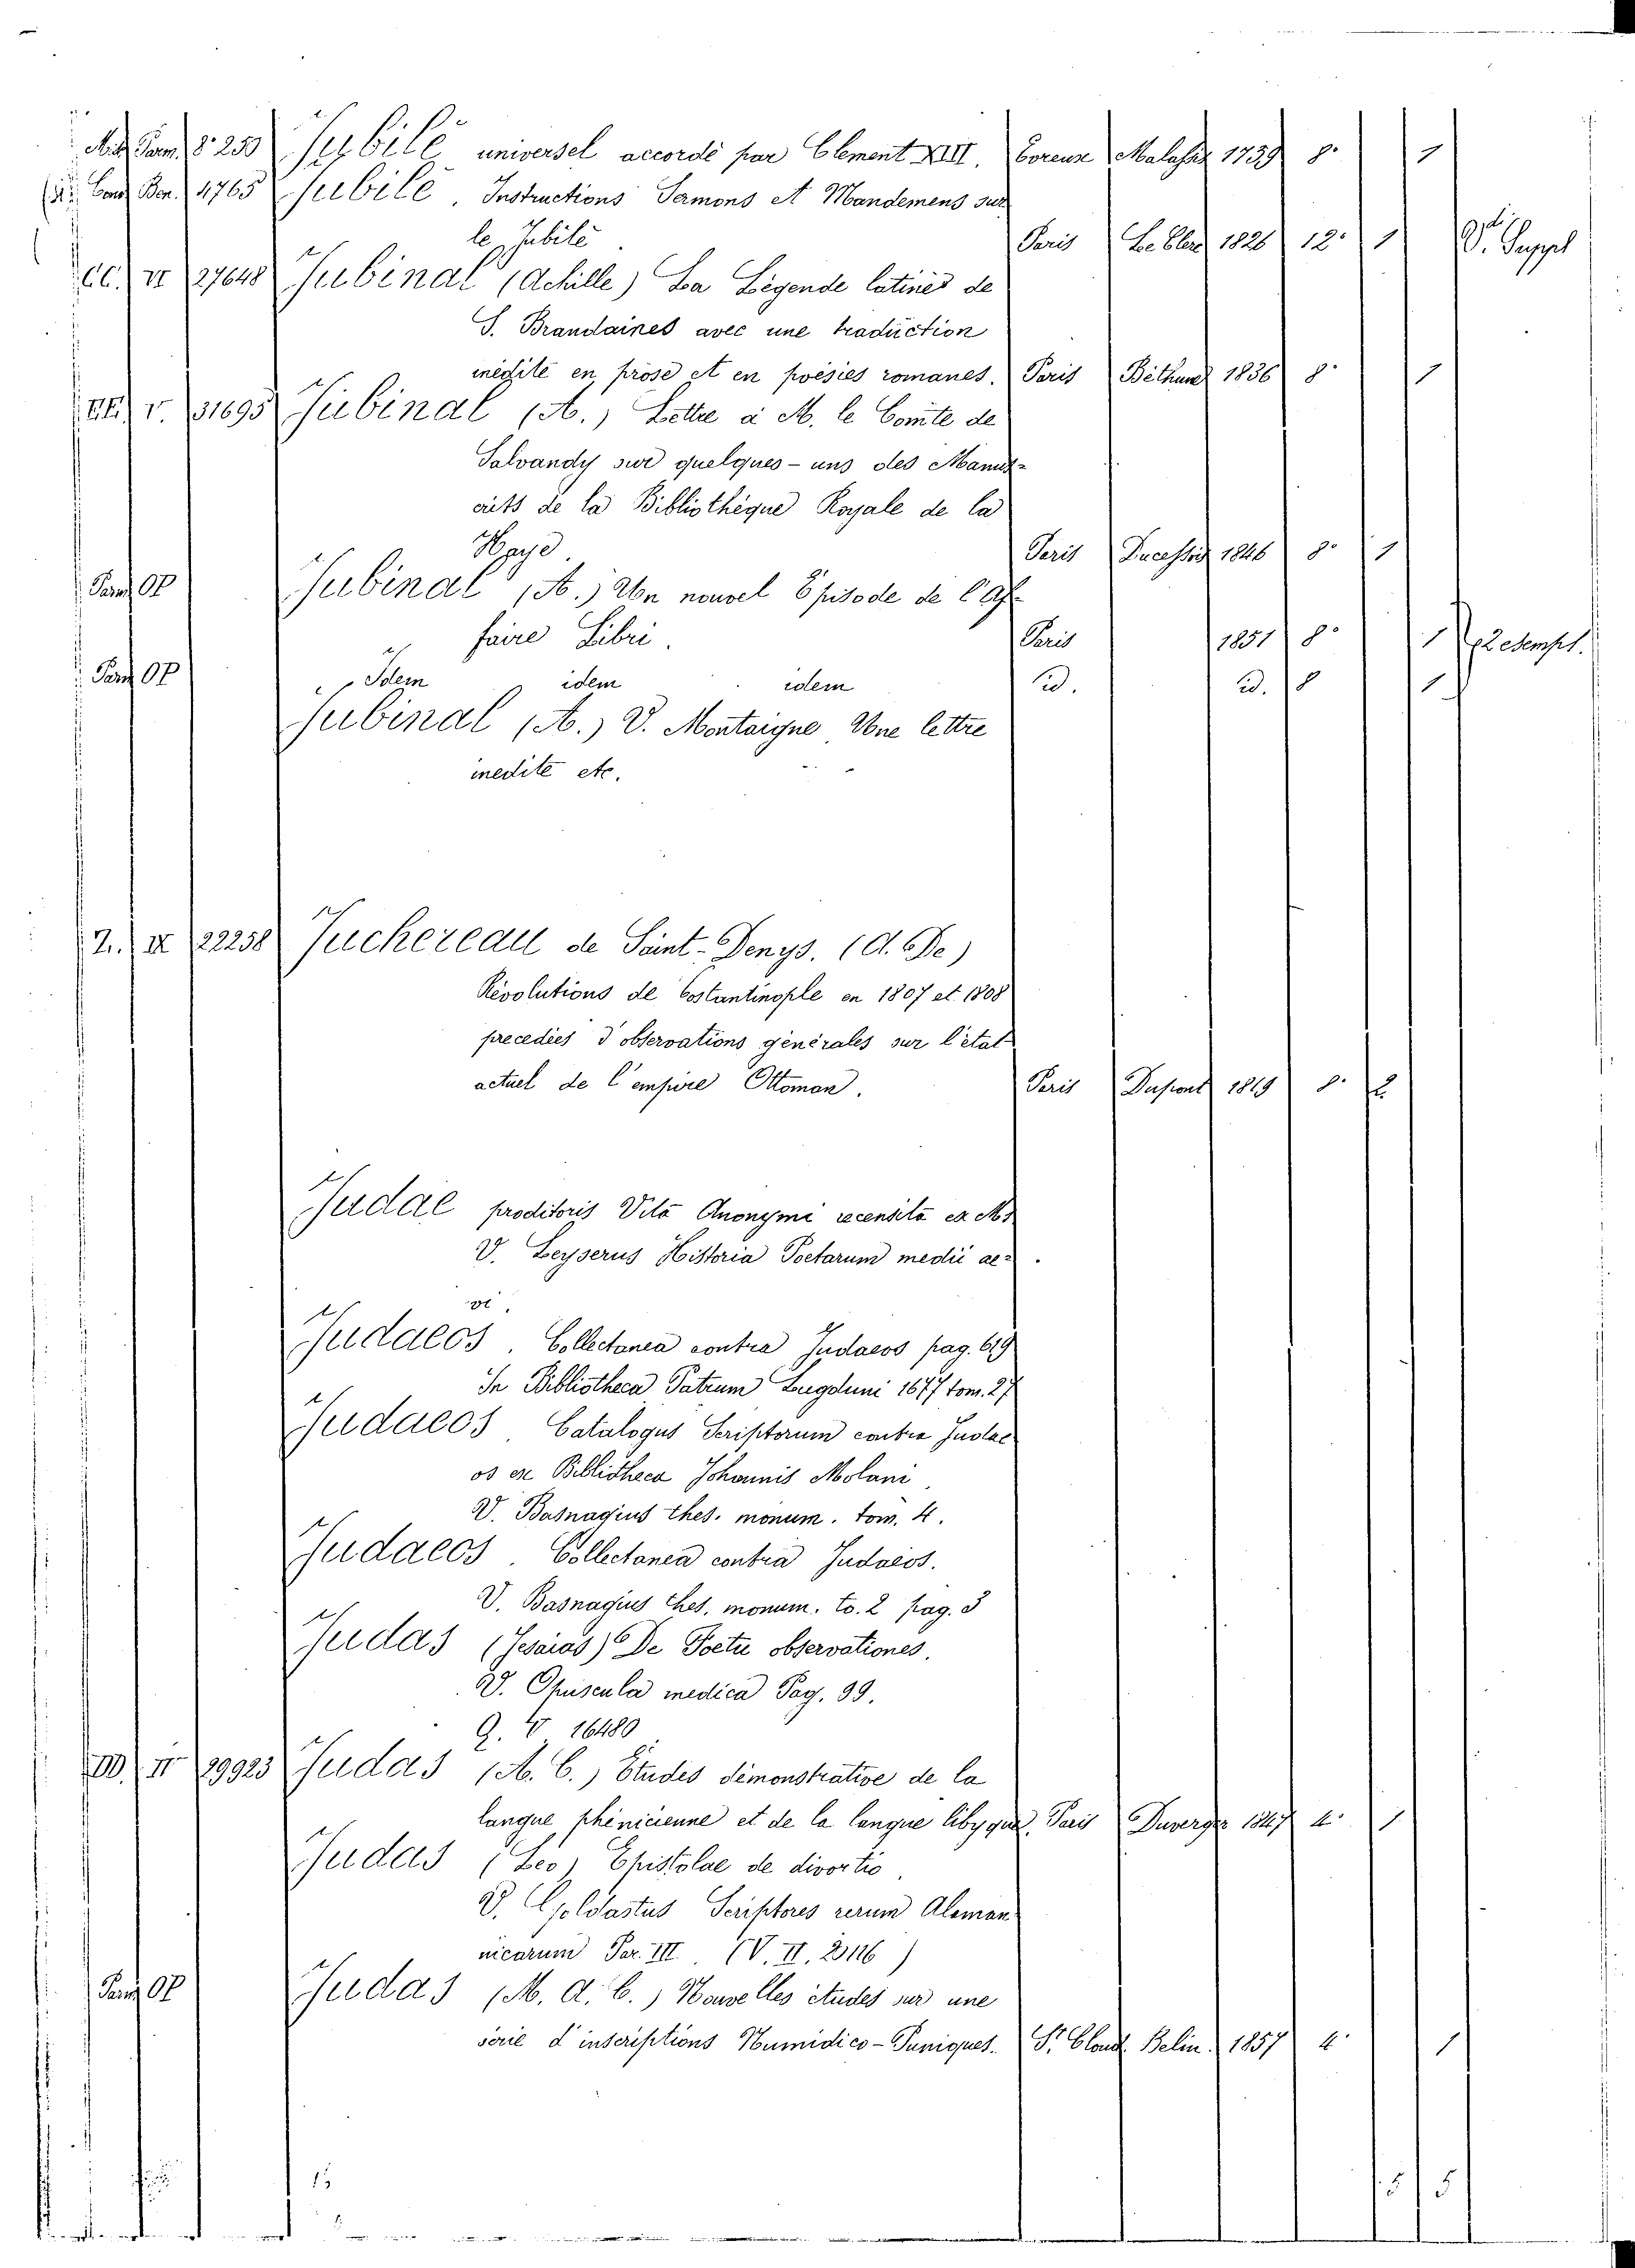 8.° 250 Jubilé universel accordé par Clement XIII. 1739 8.° 1
Ben. 4765 Jubilé. Instructions Sermons et Mandemens sur
le Jubilé Paris Le Clerc 1826 12.° 1 V. Suppl
CC. VI 27648 Jubinal (Achille) La Légende latines de
S. Brandaines avec une traduction
inédite en prose et en poésies romanes. Paris Béthune 1836 8.° 1
V. 31695 Jubinal (A.) Lettre à M. le Comte de
Salvandy sur quelques-uns des Manus-
crits de la Bibliothèque Royale de la
Haye. Paris 1846 8.° 1
OP Jubinal (A.) Un nouvel Episode de l'Af
faire Libri. Paris 1851 8.° 1
OP Idem idem idem id. id. 8 1
Jubinal (A.) V. Montaigne Une lettre
inedite etc.
Z. IX 22258 Juchereau de Saint-Denys. (A. De)
Révolutions de Costantinople en 1807 et 1808
precedées d'observations générales sur l'état
actuel de l'empire Ottoman. Paris Dupont 1819 8.° 2
Judae proditoris Vita Anonymi recensita ex Ms
V. Leyserus Historia Poetarum medii ae-
vi.
Judaeos. Collectanea contra Judaeos pag. 619
In Bibliotheca Patrum Lugduni 1677 tom. 27
Judaeos. Catalogus Scriptorum contra Judae
os ex Bibliotheca Johannis Molani
V. Basnagius thes. monum. tom. 4.
Judaeos. Collectanea contra Judaeos.
V. Basnagius thes. monum. to. 2 pag. 3
Judas (Jesaias) De Foetu observationes.
V. Opuscula medica Pag. 99.
Q. V 16480
DD. II 29923 Judas (A. C.) Etudes démonstrative de la
langue phénicienne et de la langue libyque. Paris Duverger 1847 4.° 1
Judas (Leo) Epistolae de divortio
V. Goldastus Scriptores rerum Aleman
nicarum Par. III. (V. II. 23116)
OP Judas (M. A. C.) Nouvelles études sur une
série d'inscriptions Numidico-Puniques. St. Cloud Belin. 1857 4.° 1
15
5 5